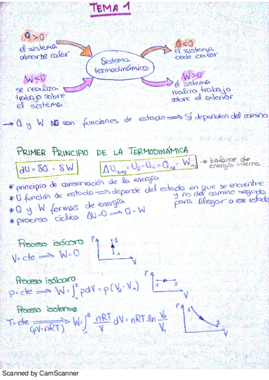 TEMA 1
Q>0
el sistema
absorbe calor
Q<0
el sistema
cede calor
Sistema
termodinámico
W<0
se realiza
trabajo sobre
el sistema
W>0
el sistema
realiza trabajo
sobre el exterior
→ Q y W NO son funciones de estado ⟹ Sí dependen del camino
PRIMER PRINCIPIO DE LA TERMODINÁMICA
dU = δQ - δW
→ balance de
energía interna
* principio de conservación de la energía
* U función de estado ⟹ depende del estado en que se encuentre
y no del camino seguido
para llegar a ese estado
* Q y W formas de energía
* proceso cíclico ΔU=0 → Q=W
Proceso isócoro
V = cte ⟹ W=0
P
V
Proceso isóbaro
p = cte ⟹ W = ∫ pdV = p(V₂-V₁)
P
V
Proceso isotermo
T = cte (pV=nRT) ⟹ W = ∫ nRT/V dV = nRT ln V₂/V₁
P
V
Scanned by CamScanner